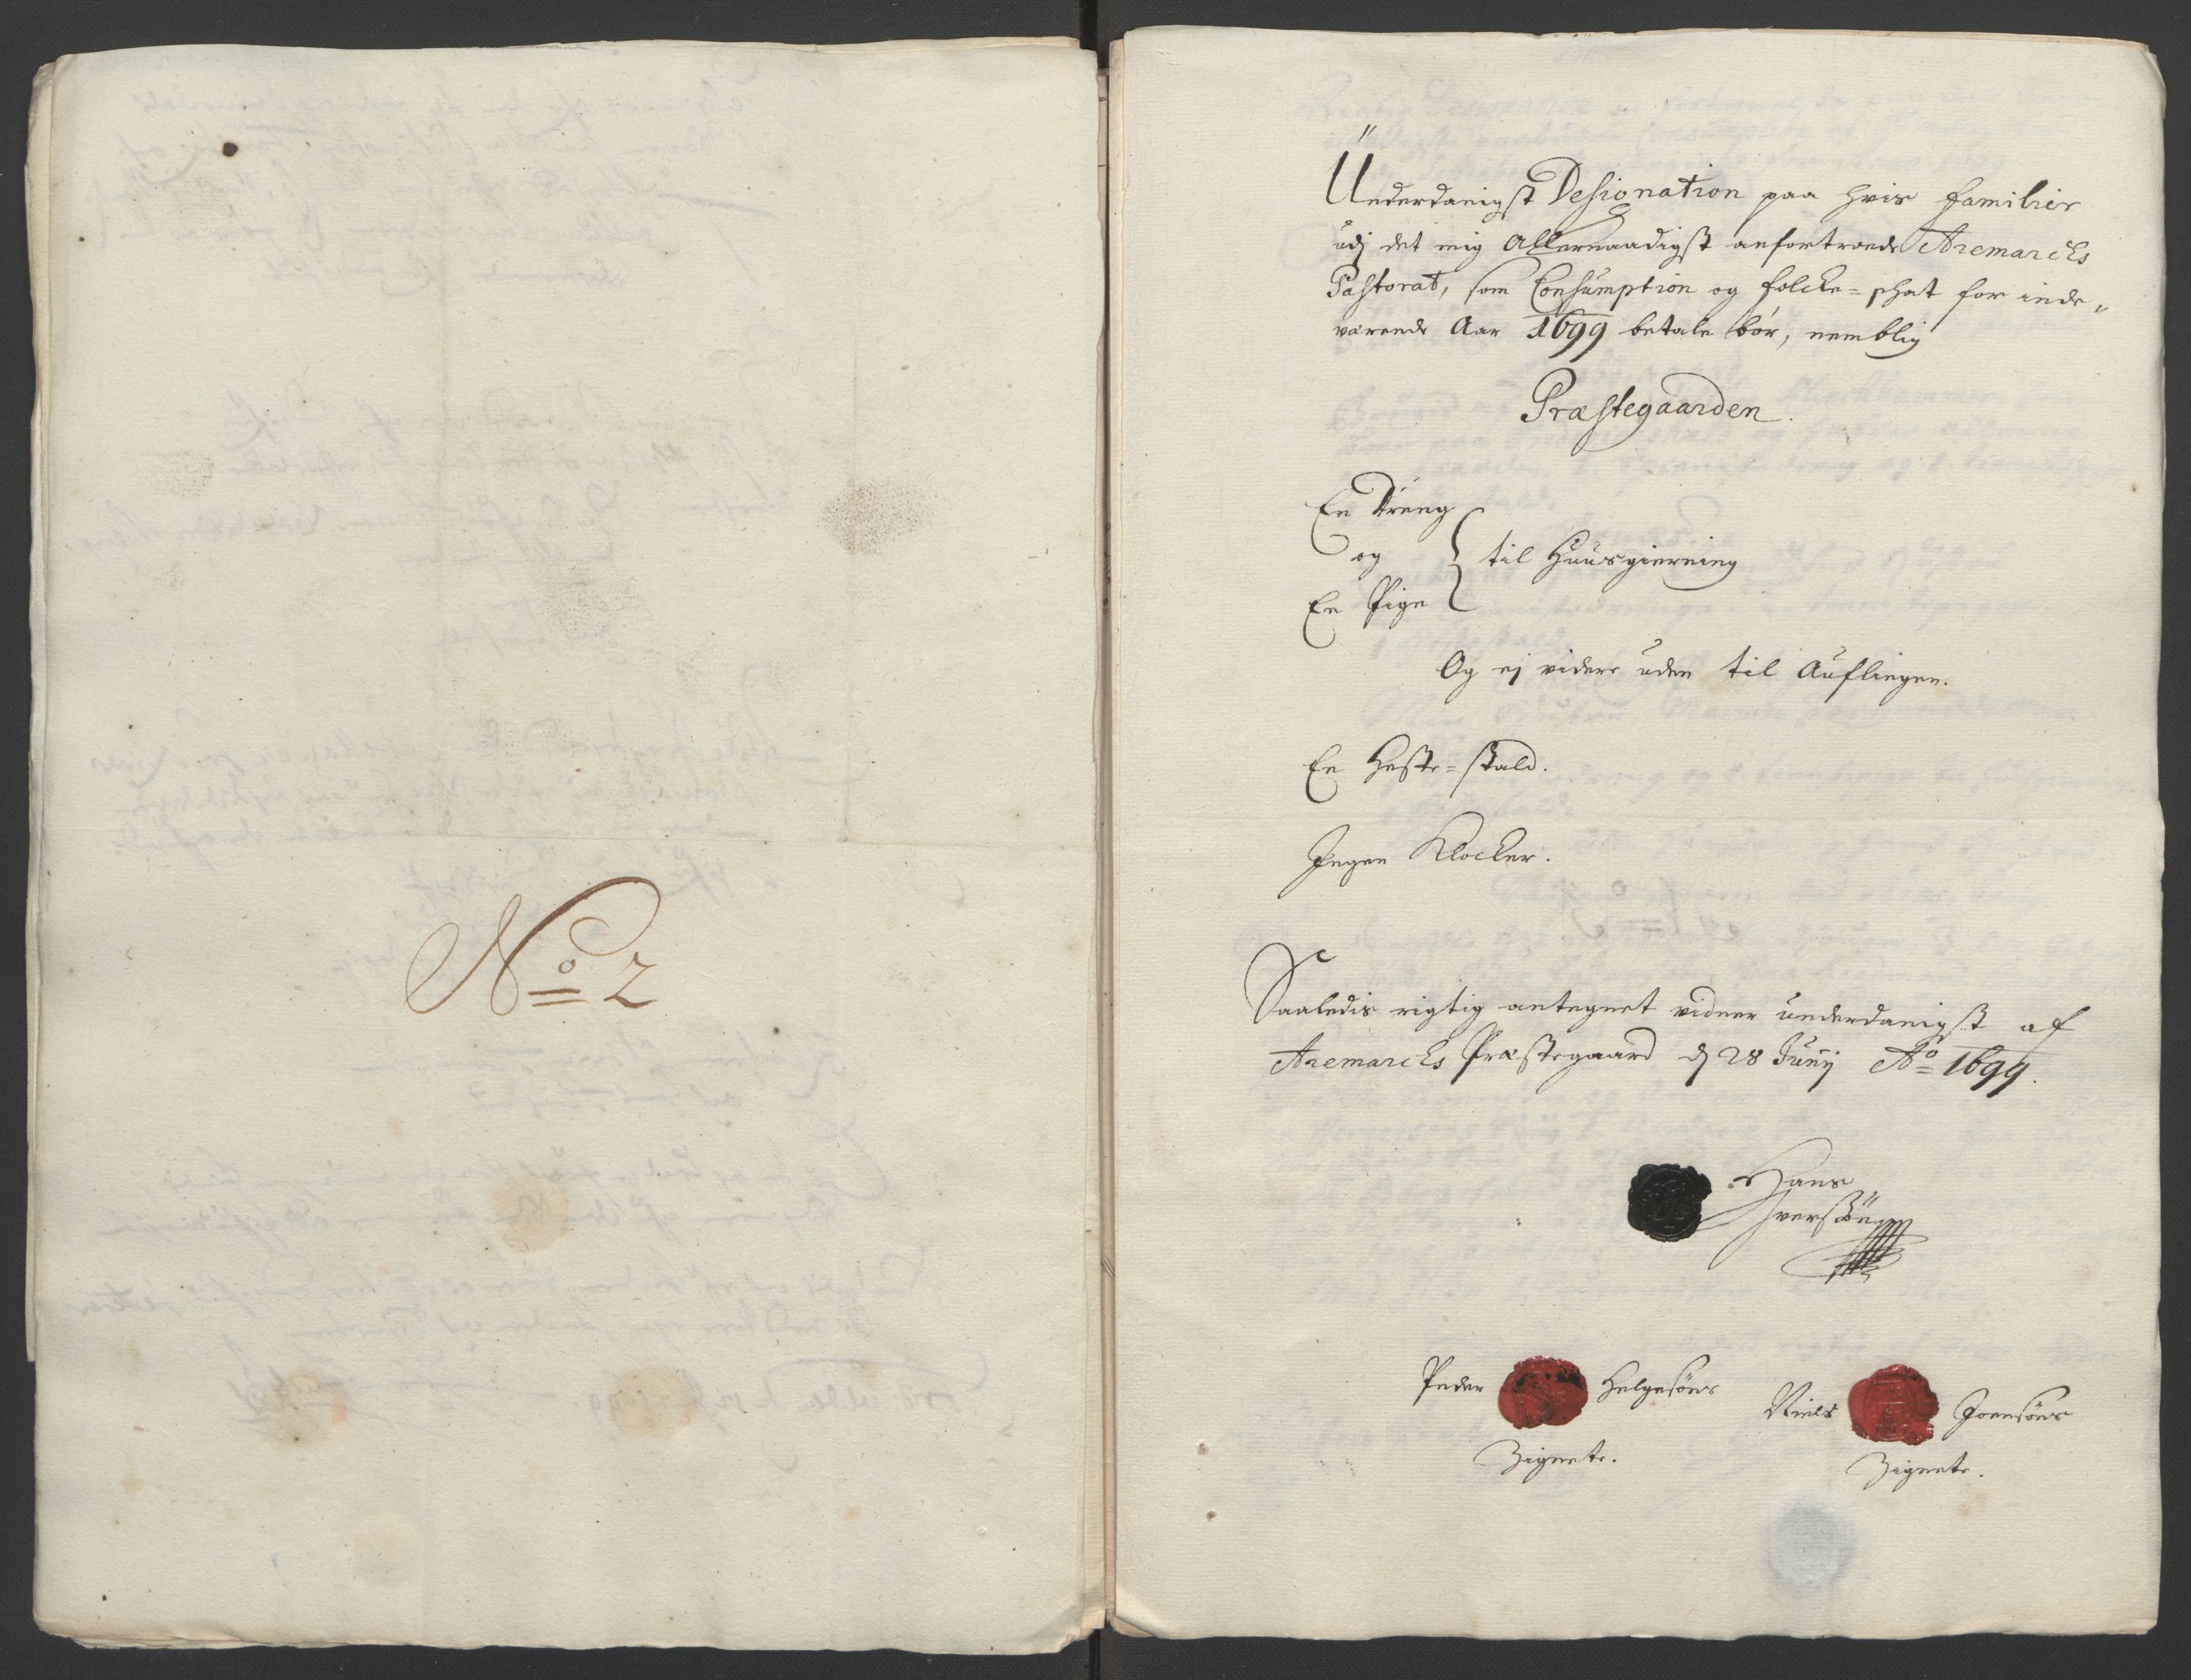 No 2
Underdanigst Designation paa hvis familier
udj det mig Allernaadigst anfortroede Aremarcks
Pastorat, som Consumption og folcke=schat for inde„
værende Aar 1699 betale bör, nemblig
Præstegaarden.
En Dreng
og
til Huusgierning
En Pige
Og ej videre uden til Auflingen.
En Heste=stald.
Ingen Klocker.
Saaledis rigtig antegnet vidner underdanigst af
Aremarcks Præstegaard dj 28 Junij Ao 1699.
Hans
Iversøn
Peder Helgesöns
Zignete.
Niels Joensöns
Zignete.